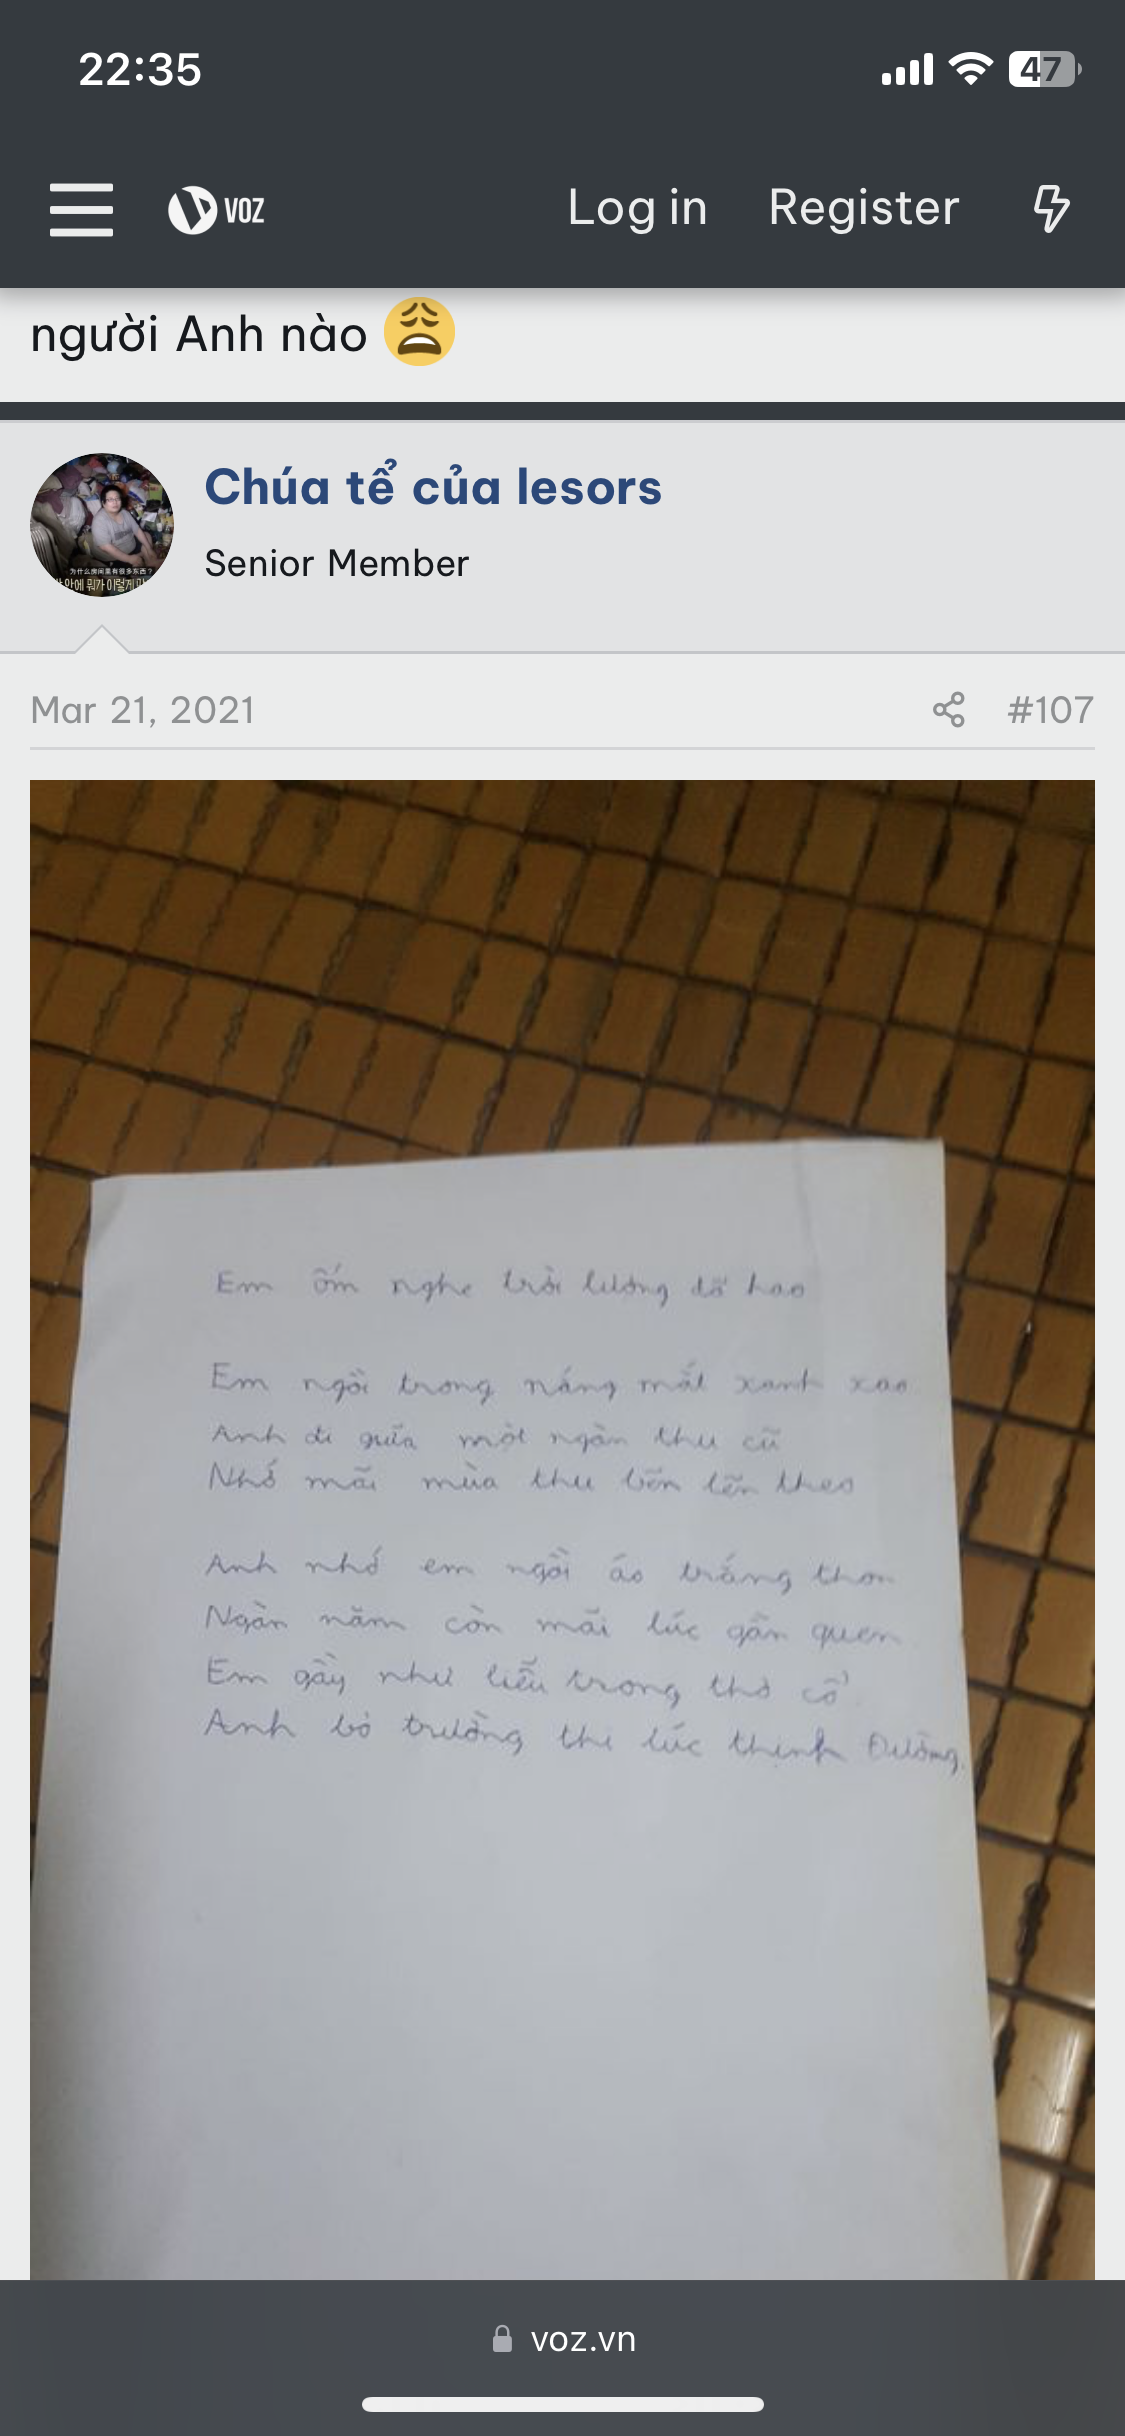 22:35
47
VOZ Log in Register
người Anh nào
Chúa tể của lesors
Senior Member
为什么房间里有很多东西?
안에 뭐가 이렇게
Mar 21, 2021 #107
Em ốm nghe trời lượng đã hao
Em ngồi trong nắng mắt xanh xao
Anh đi giữa một ngàn thu cũ
Nhớ mãi mùa thu bẽn lẽn theo
Anh nhớ em ngồi áo trắng thon
Ngàn năm còn mãi lúc gần quen
Em gầy như liễu trong thơ cổ
Anh bỏ trường thi lúc thịnh Đường.
voz.vn